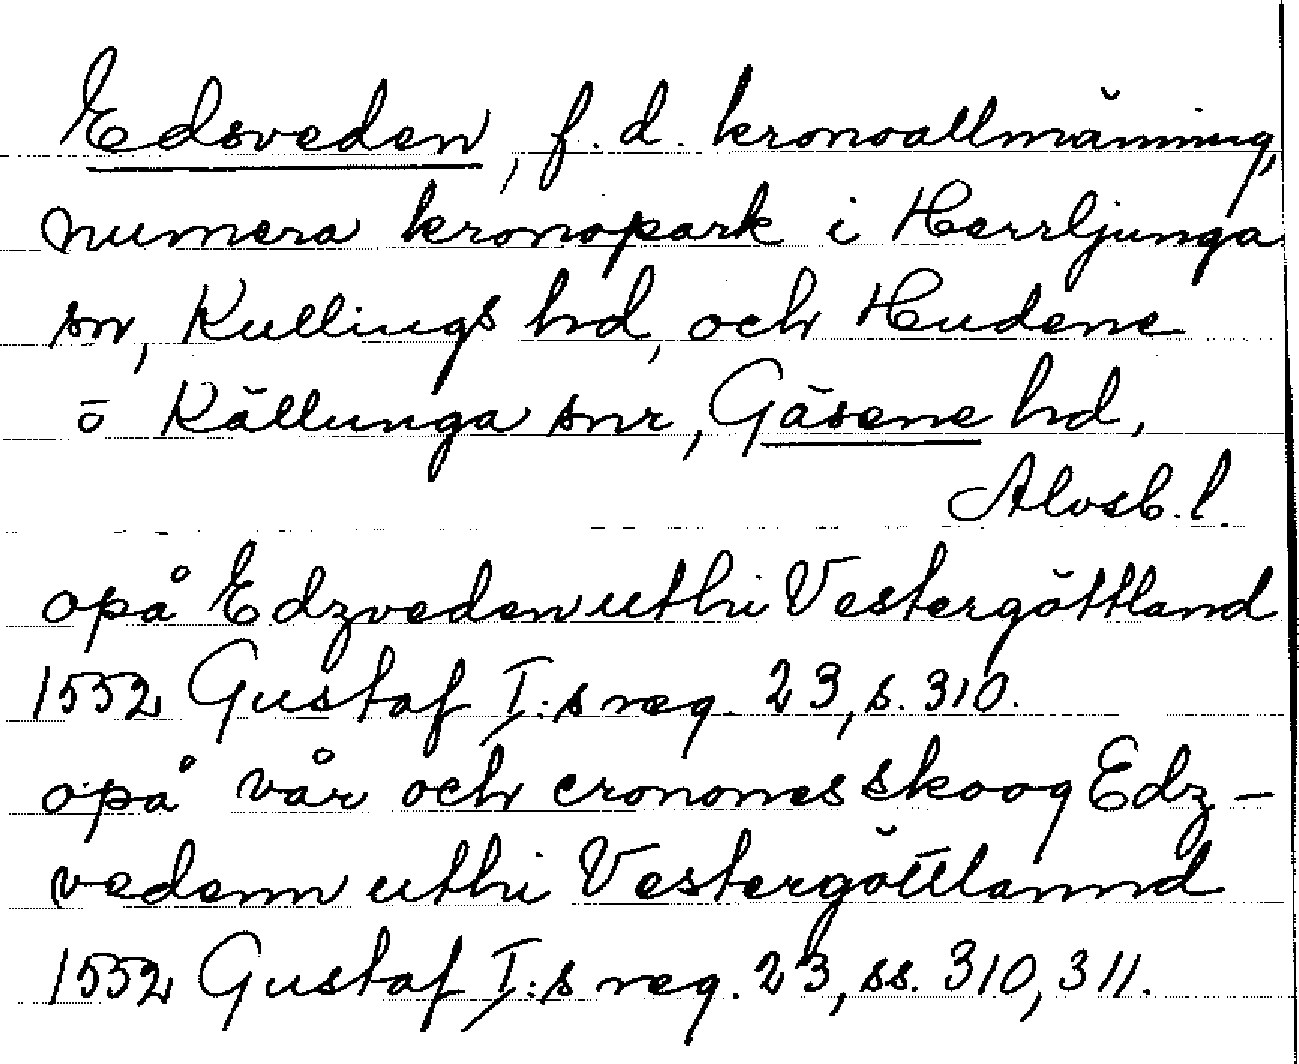 Edsveden, f. d. kronoallmänning,
numera kronopark i Herrljunga
sn, Kullings hd, och Hudene
o Källunga snr, Gäsene hd,
Älvsb. l.
opå Edzveden uthi Vestergöttland
1552 Gustaf I:s reg. 23, s. 310.
opå vår och cronones skoog Edz-
vedenn uthi Vestergöttlannd
1552 Gustaf I:s reg. 23, ss. 310, 311.